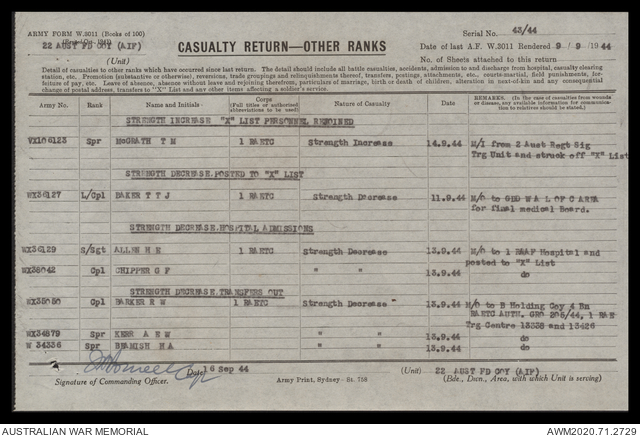 ARMY FORM W.3011 (Books of 100)
22 AUST FD COY (AIF)
(Unit)
CASUALTY RETURN—OTHER RANKS
Serial No. 43/44
Date of last A.F. W.3011 Rendered 9 / 9 /19 44
No. of Sheets attached to this return
Detail of casualties to other ranks which have occurred since last return. The detail should include all battle casualties, accidents, admissions to and discharge from hospital, casualty clearing
station, etc. Promotion (substantive or otherwise), reversions, trade groupings and relinquishments thereof, transfers, postings, attachments, etc., courts-martial, field punishments, for-
feiture of pay, etc. Leave of absence, absence without leave and rejoining therefrom, particulars of marriage, birth or death of children, alteration in next-of-kin and any consequential
change of postal address, transfers to "X" List and any other items affecting a soldier's service.
Army No. Rank Name and Initials Corps (Full titles or authorised abbreviations to be used) Nature of Casualty Date REMARKS. (In the case of casualties from wounds or disease, any available information for communication to relatives should be stated.)
STRENGTH INCREASE "X" LIST PERSONNEL REJOINED
WX106123 Spr McGRATH T M 1 RAETC Strength Increase 14.9.44 M/I from 2 Aust Regt Sig
Trg Unit and struck off "X" List
STRENGTH DECREASE.POSTED TO "X" LIST
WX36127 L/Cpl BAKER T T J 1 RAETC Strength Decrease 11.9.44 M/O to GDD W A L OF C AREA
for final medical Board.
STRENGTH DECREASE.HOSPITAL ADMISSIONS
WX36129 S/Sgt ALLEN H E 1 RAETC Strength Decrease 13.9.44 M/O to 1 RAAF Hospital and
posted to "X" List
WX38042 Cpl CHIPPER G F " " 13.9.44 do
STRENGTH DECREASE.TRANSFERS OUT
Cpl BARKER R W 1 RAETC Strength Decrease 13.9.44 M/O to B Holding Coy 4 Bn
RAETC AUTH. GRO 206/44, 1 RAE
Trg Centre 13338 and 13426
WX34879 Spr KERR A E W " " 13.9.44 do
W 34336 Spr BEAMISH H A " " 13.9.44 do
Date 16 Sep 44
Signature of Commanding Officer.
Army Print, Sydney
(Unit) 22 AUST FD COY (AIF)
(Bde., Dvn., Area, with which Unit is serving)
AUSTRALIAN WAR MEMORIAL
AWM2020.71.2729